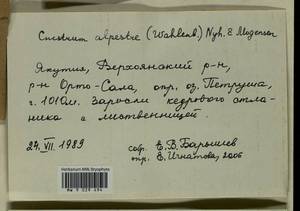 Cnestrum alpestre (Wahlenb.) Nyh. & Mogensen
Якутия, Верхоянский р-н,
р-н Орто-Сала, окр. оз. Петруша,
г. 1010м. Заросли кедрового стла-
ника с лиственницей.
27. VII. 1989 соб. Е. В. Барышев
опр. Е. Игнатова, 2006
Herbarium MW, Bryophyta